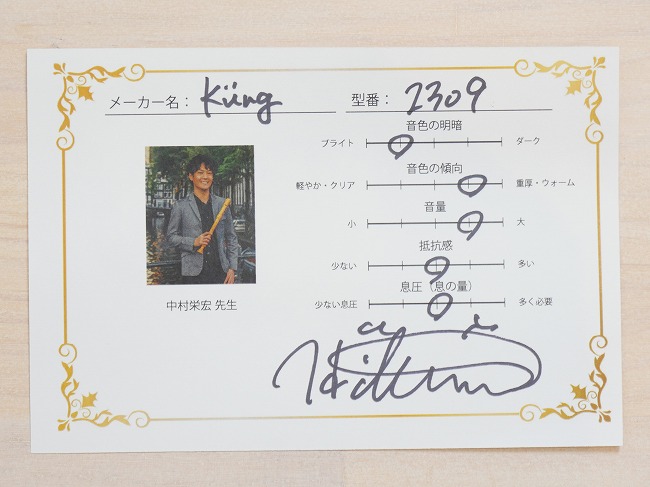 メーカー名： Küng
型番： 2309
音色の明暗
ブライト ダーク
音色の傾向
軽やか・クリア 重厚・ウォーム
音量
小 大
抵抗感
少ない 多い
息圧（息の量）
少ない息圧 多く必要
中村栄宏 先生